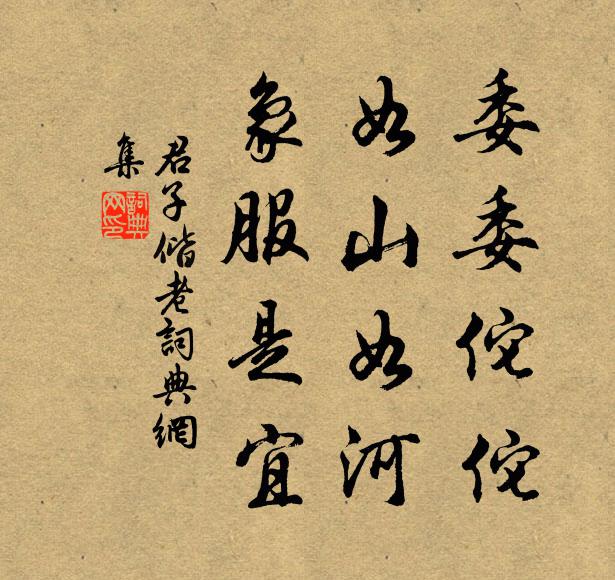 委委佗佗
如山如河
象服是宜
君子偕老詞典網
集
詞典
网印